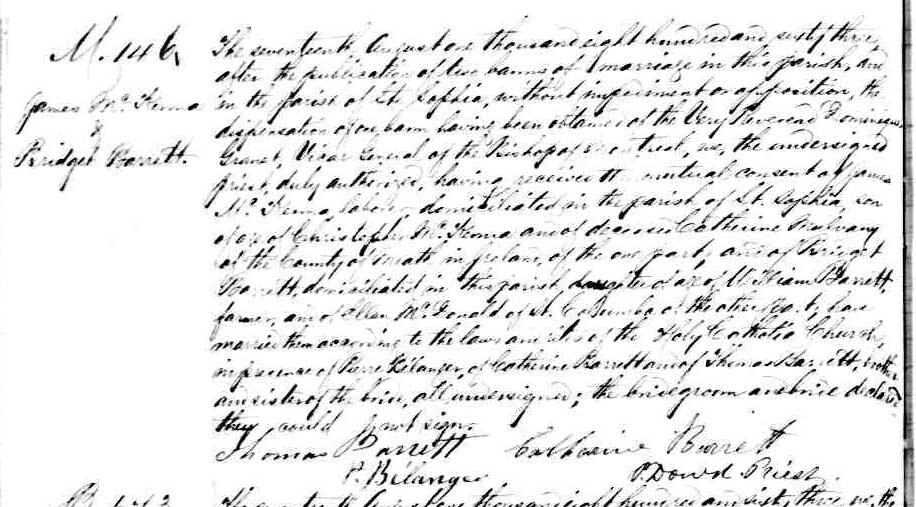 M. 146
James Mc. Kenna
&
Bridget Barrett.
The seventeenth August one thousand eight hundred and sixty three,
after the publication of two banns of marriage in this parish, and
in the parish of St. Sophia, without impediment or opposition, the
dispensation of one bann having been obtained of the Very Reverend Dominique
Granet, Vicar General of the Bishop of Montreal, we, the undersigned
priest, duly authorized, having received the mutual consent of James
Mc. Kenna, laborer, domiciliated in the parish of St. Sophia, son
of age of Christopher Mc. Kenna and of deceased Catherine Mulvany
of the County of Meath in Ireland, of the one part; and of Bridget
Barrett, domiciliated in this parish, daughter of age of William Barrett,
farmer, and of Ellen Mc. Donald of St. Columba of the other part; have
married them according to the laws and rites of the Holy Catholic Church,
in presence of Pierre Bélanger, of Catherine Barrett and of Thomas Barrett, brother
and sister of the bride, all undersigned; the bridegroom and bride declared
they could not sign.
Thomas Barrett Catherine Barrett
P. Bélanger P. Dowd Priest.
The seventeenth August one thousand eight hundred and sixty three, we, the